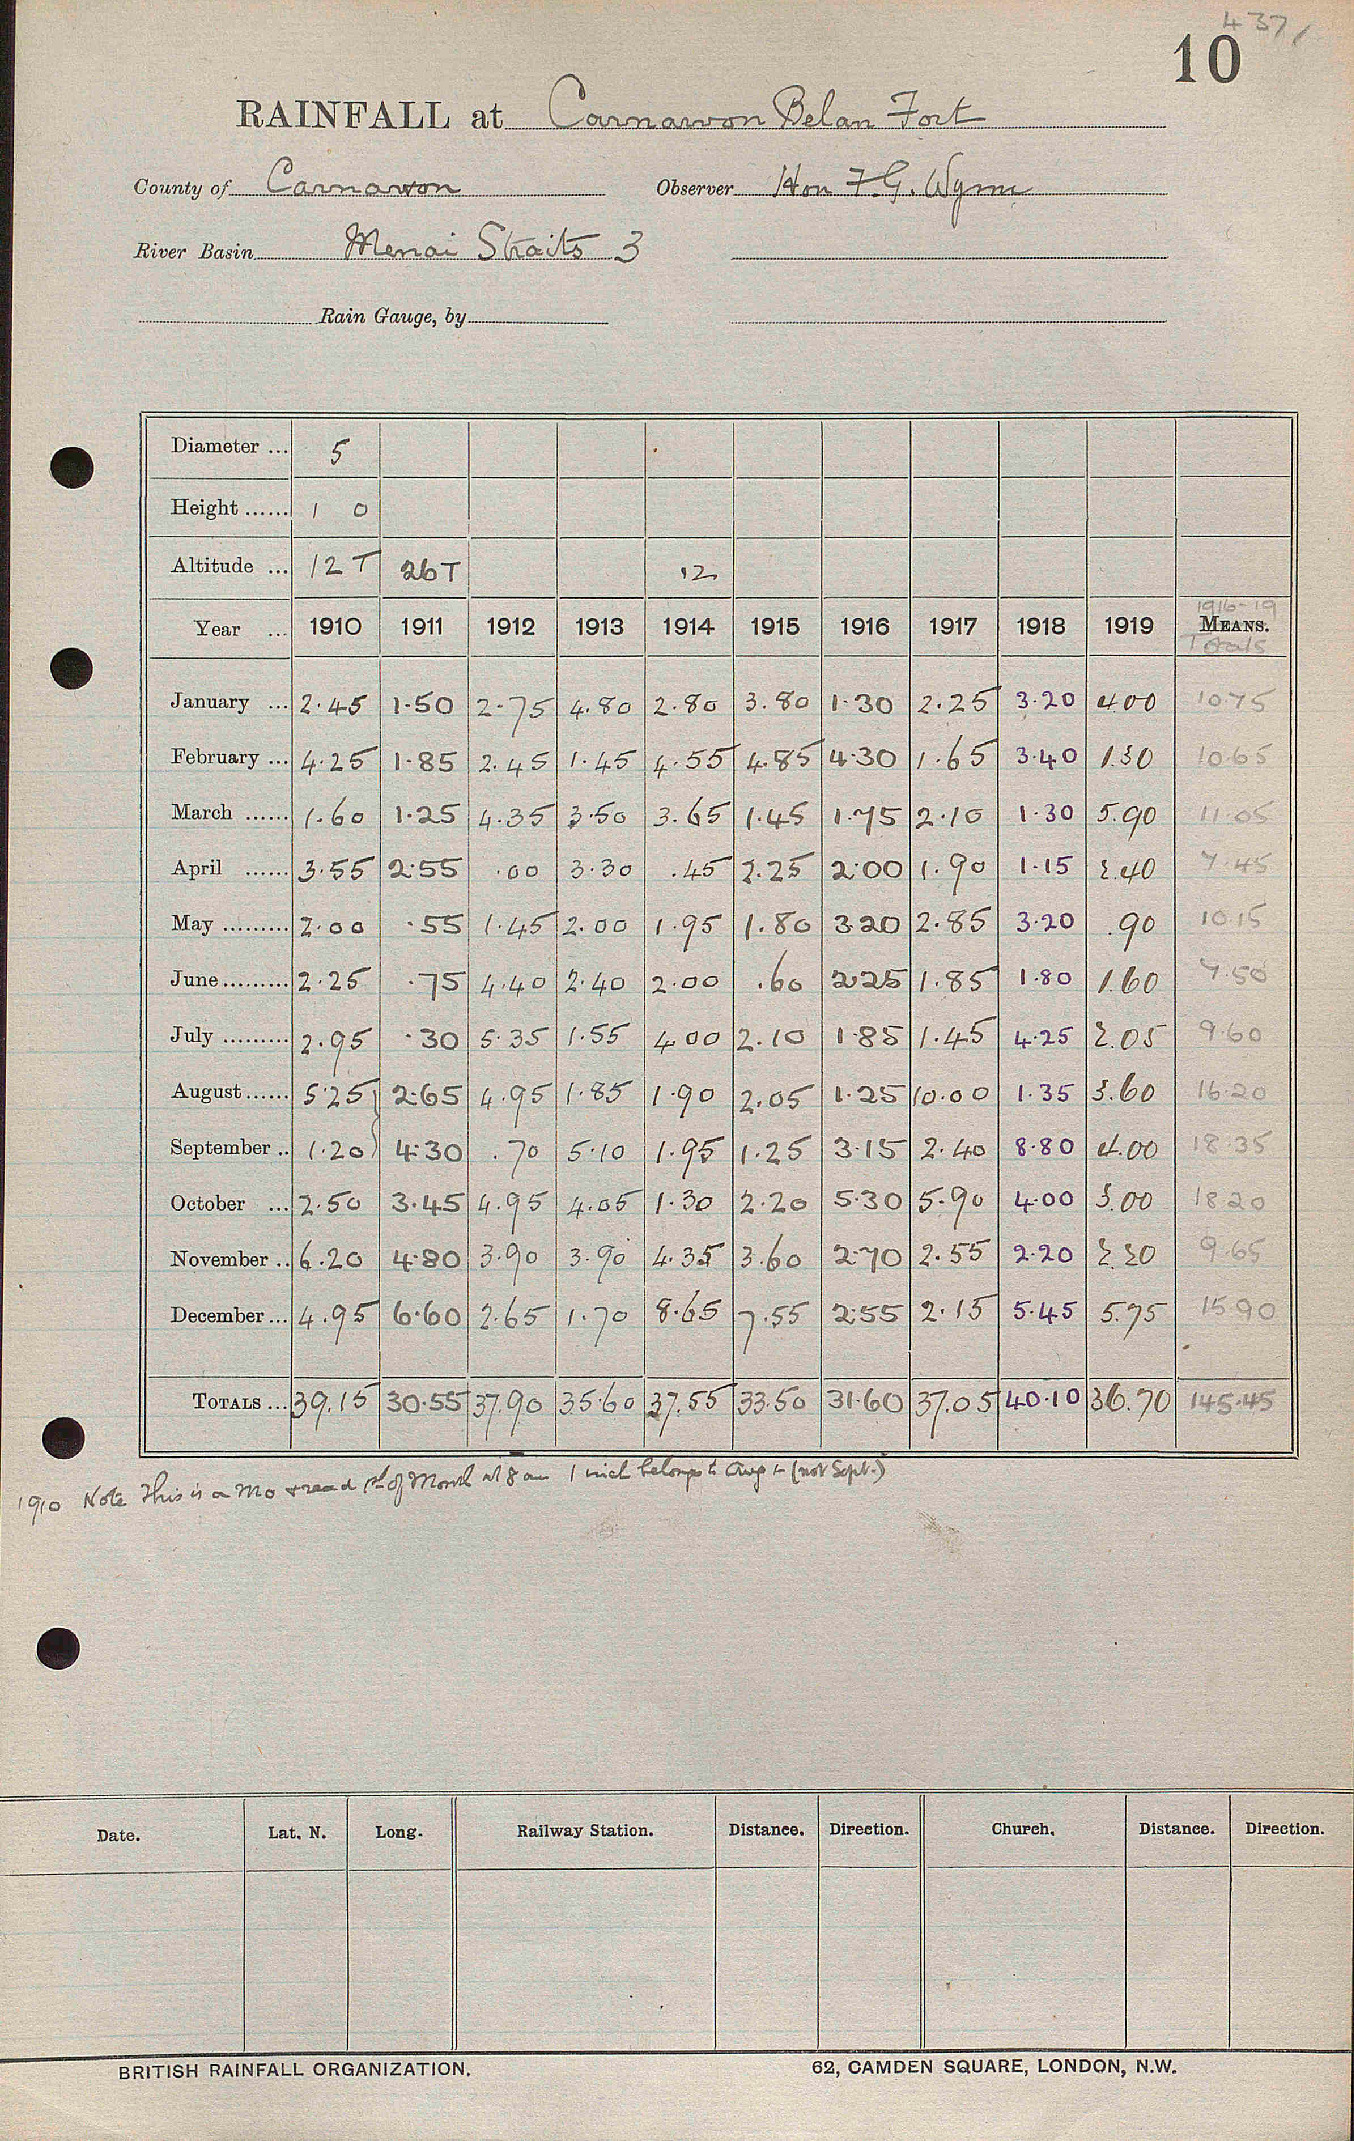 437
10
RAINFALL at Carnarvon Belan Fort
County of Carnarvon Observer Hon F.G. Wynn
River Basin Menai Straits 3
Rain Gauge, by
Diameter ... 5
Height ...... 1 0
Altitude ... 12 T 26T 12
1916-19
Year ... 1910 1911 1912 1913 1914 1915 1916 1917 1918 1919 MEANS.
Totals
January ... 2.45 1.50 2.75 4.80 2.80 3.80 1.30 2.25 3.20 4.00 10.75
February ... 4.25 1.85 2.45 1.45 4.55 4.85 4.30 1.65 3.40 1.30 10.65
March ...... 1.60 1.25 4.35 3.50 3.65 1.45 1.75 2.10 1.30 5.90 11.05
April ...... 3.55 2.55 .00 3.30 .45 2.25 2.00 1.90 1.15 2.40 7.45
May ......... 2.00 .55 1.45 2.00 1.95 1.80 3.20 2.85 3.20 .90 10.15
June ......... 2.25 .75 4.40 2.40 2.00 .60 2.25 1.85 1.80 1.60 7.50
July ......... 2.95 .30 5.35 1.55 4.00 2.10 1.85 1.45 4.25 2.05 9.60
August ...... 5.25 2.65 4.95 1.85 1.90 2.05 1.25 10.00 1.35 3.60 16.20
September .. 1.20 4.30 .70 5.10 1.95 1.25 3.15 2.40 8.80 4.00 18.35
October ... 2.50 3.45 4.95 4.05 1.30 2.20 5.30 5.90 4.00 3.00 18.20
November .. 6.20 4.80 3.90 3.90 4.35 3.60 2.70 2.55 2.20 2.20 9.65
December ... 4.95 6.60 2.65 1.70 8.65 7.55 2.55 2.15 5.45 5.75 15.90
TOTALS ... 39.15 30.55 37.90 35.60 37.55 33.50 31.60 37.05 40.10 36.70 145.45
1910 Note This is a Mo read 1st of Month at 8 am 1 inch belongs to Aug (not Sept.)
Date. Lat. N. Long. Railway Station. Distance. Direction. Church. Distance. Direction.
BRITISH RAINFALL ORGANIZATION. 62, CAMDEN SQUARE, LONDON, N.W.